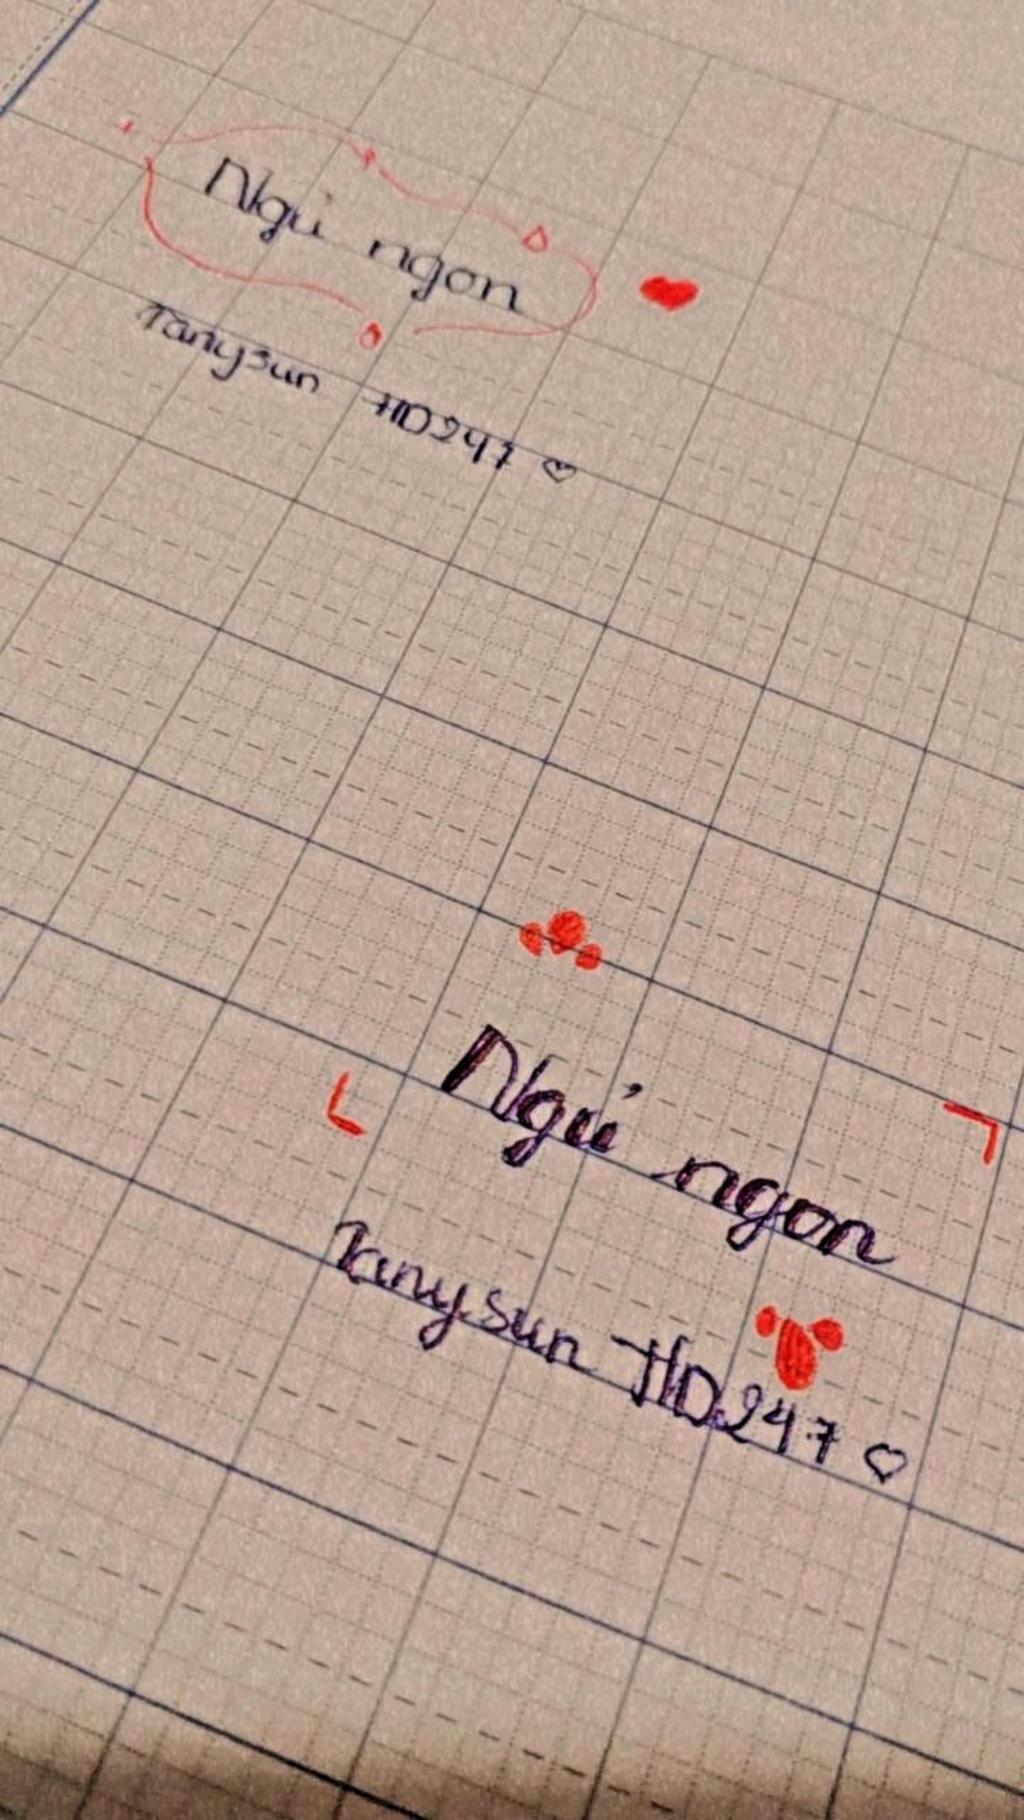 Ngủ ngon
Tanysun HD247 ♡
Ngủ ngon
Tanysun HD247 ♡